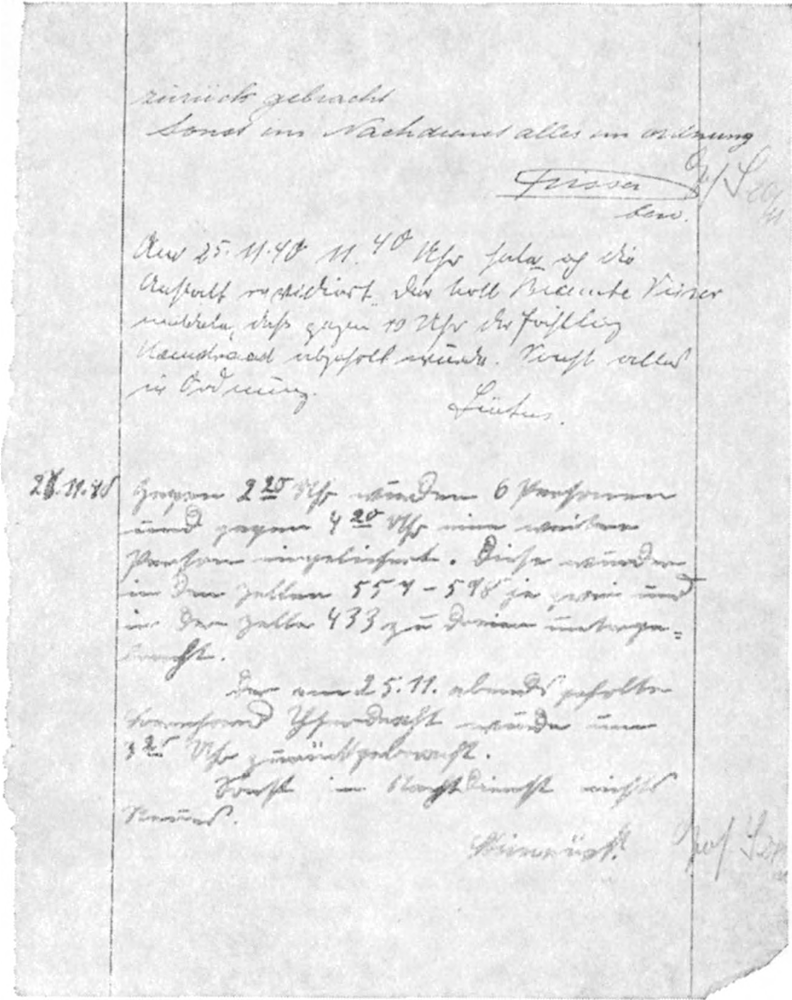 zurück gebracht
Sonst im Nachdienst alles in ordnung
Visser
bew.
Am 25.11.40 11.40 Uhr habe ich die
Anstalt revidiert. Der holl Beamte Visser
meldete, daß gegen 10 Uhr der Häftling
abgeholt wurde. Sonst alles
in Ordnung.
26.11.40 Gegen 2 20 Uhr wurden 6 Personen
und gegen 4 20 Uhr eine weitere
Person eingeliefert. Diese wurden
in den Zellen 554 - 598 je zwei und
in der Zelle 433 zu dreien unterge=
bracht.
Der am 25.11. abends geholte
wurde um
Uhr zurückgebracht.
Sonst im Nachtdienst nichts
Neues.